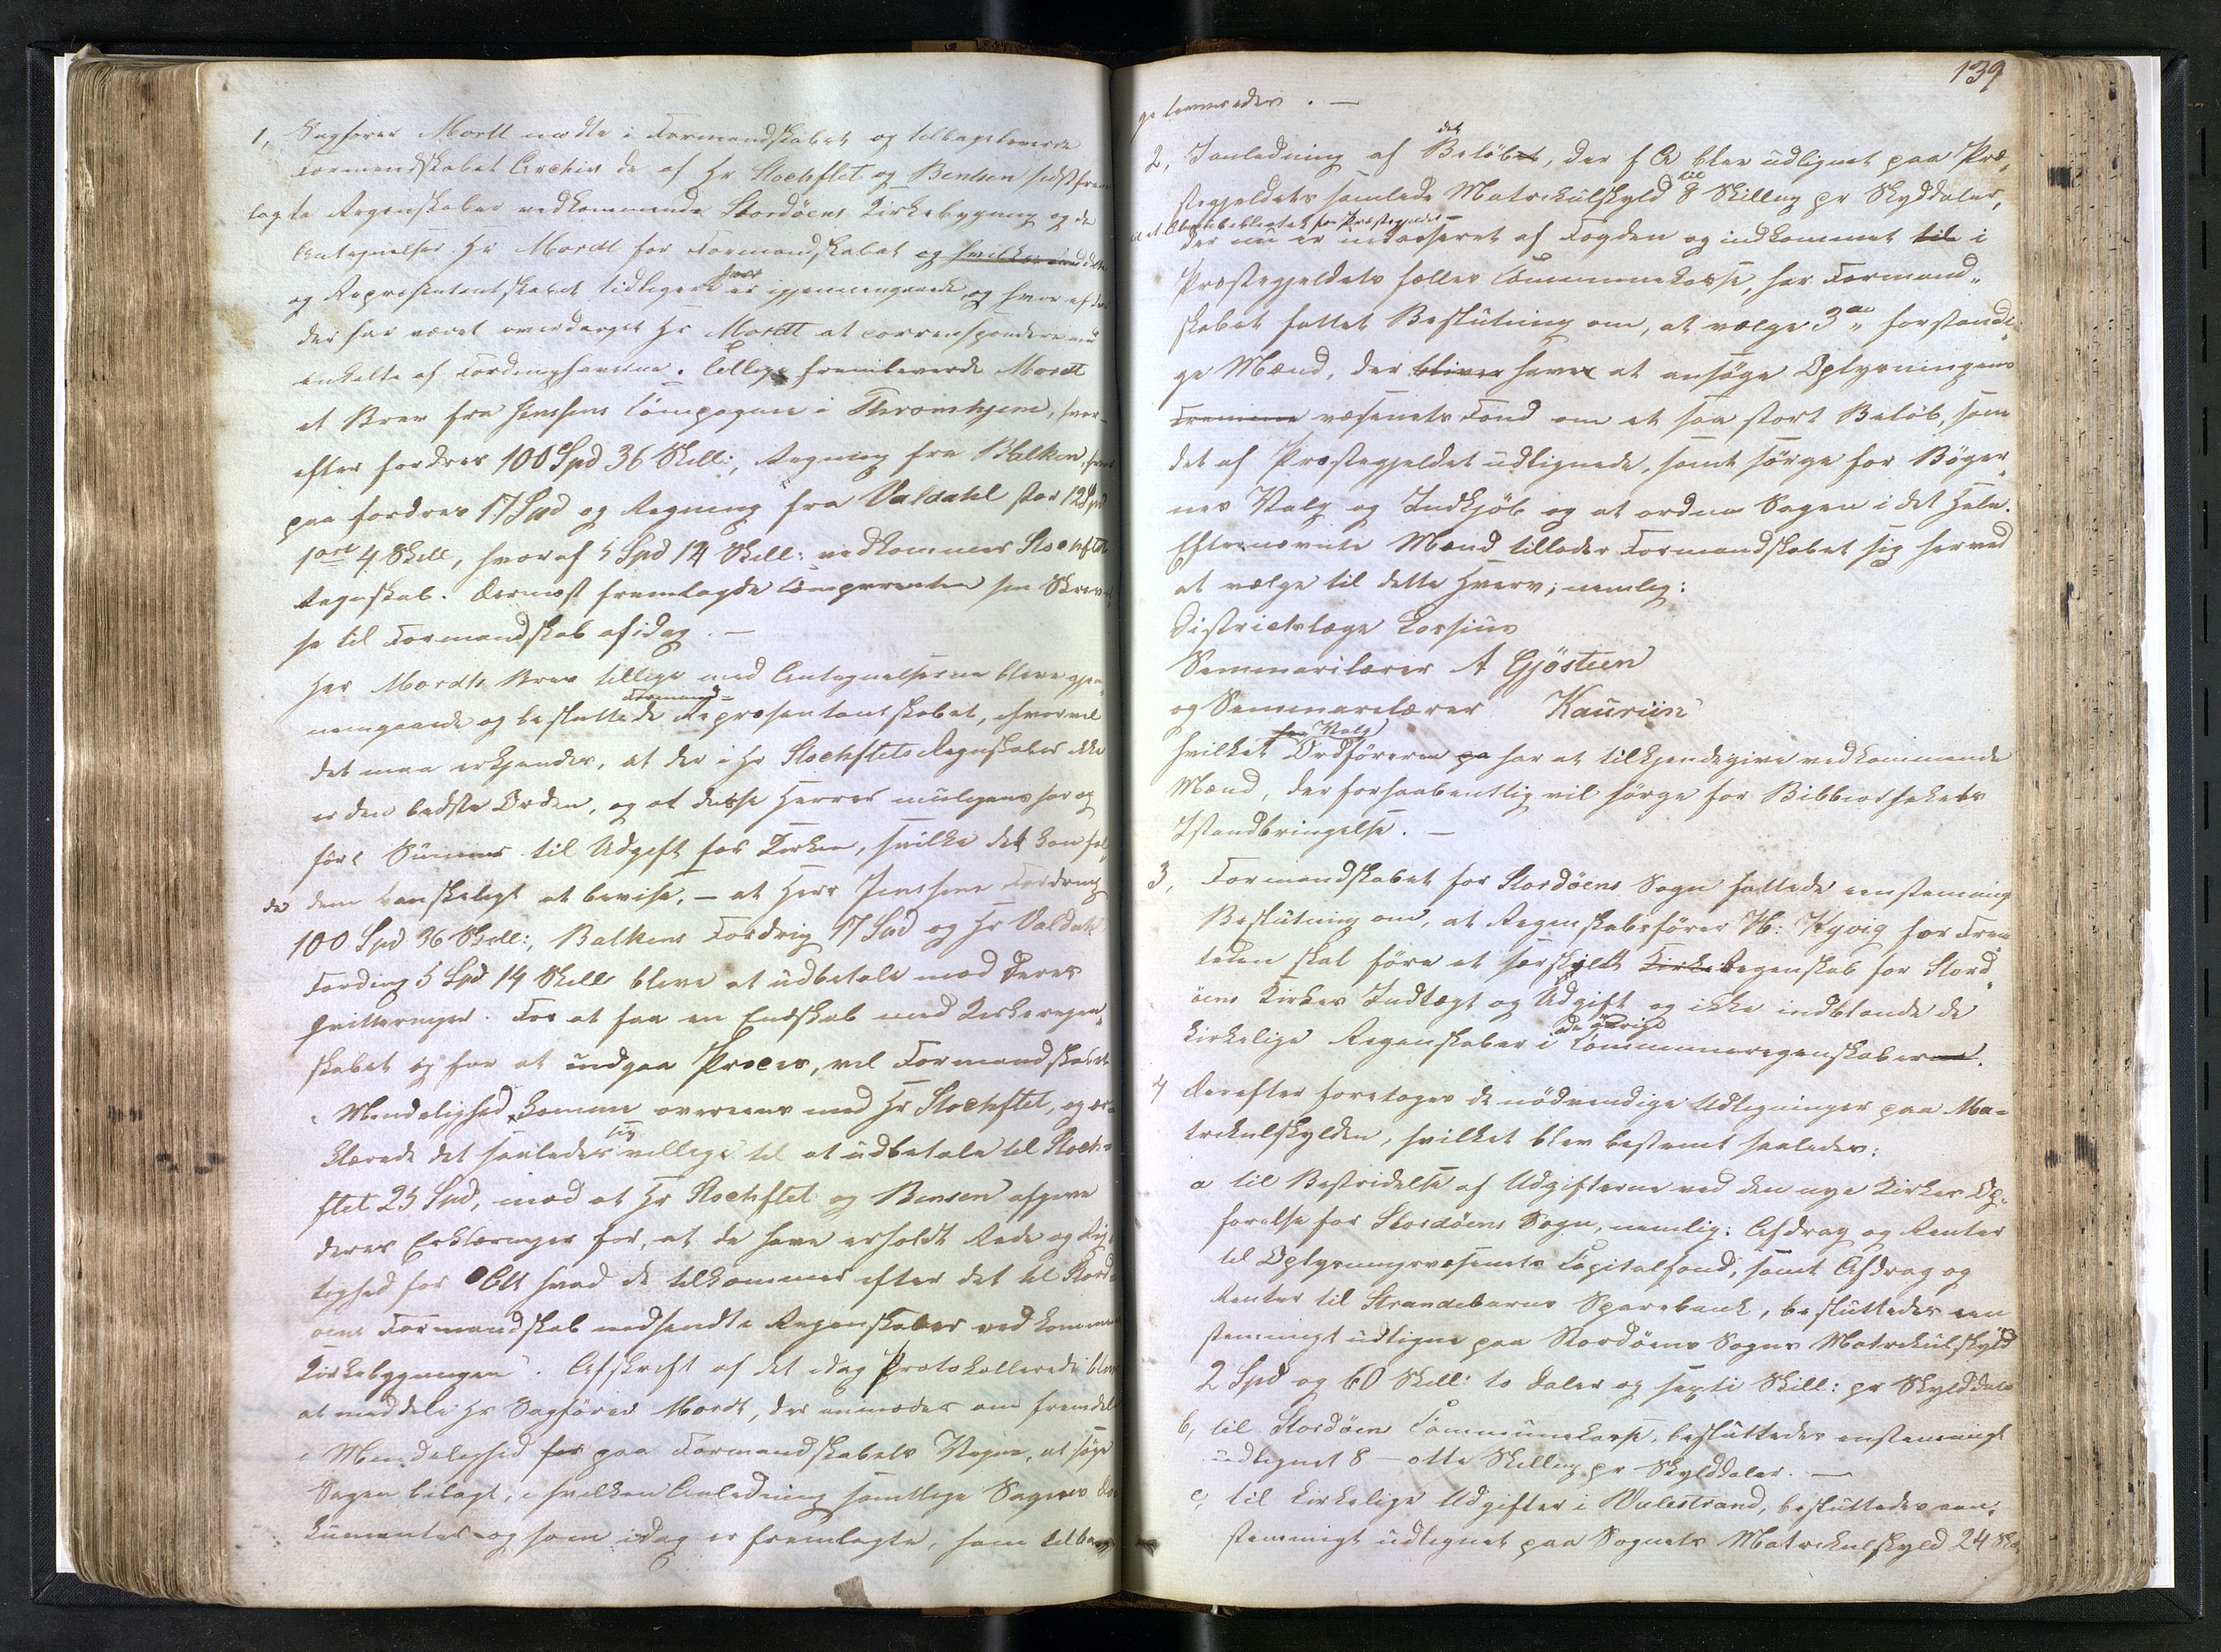 1, Sagfører Mordt mødte i Formandskabet og tilbageleverede
Formandskabet Archiv de af Hr Stochflet og Bentsen sidst frem
lagte Regnskaber vedkommende Stordöens Kirkebygning og de
Antegnelser Hr Mordt for Formandskabet og hvilke
og Repræsentantskabet tidligere har er igjennemgaaede og hvorefter
der har været overdraget Hr Mordt at correspondere med
enkelte af Fordringshaverne. Tillige fremleverede Mordt
et Brev fra Jenssens Compagnie i Throndhjem, hvor-
efter fordres 100 Spd 36 Skill:, Regning fra Balken, hvor
paa fordres 17 Spd og Regning fra Valdahl stor 12 Spd
1 ort 4 Skill, hvoraf 5 Spd 14 Skill: vedkommer Stochflet
Regnskab. Dernæst fremlagde Comparenten sin Skrivel
se til Formandskab af idag. —
Her Mordts Brev tillige med Antegnelserne bleve gjen
nemgaaede og besluttede Formand- Repræsentantskabet, ihvorvel
det maa erkjendes, at der i Hr Stochflets Regnskaber ikke
er den bedste Orden, og at disse Herrer muligens har op
ført Summer til Udgift for Kirken, hvilke det kan fal
de dem vanskeligt at bevise, — at Herr Jenssens Fordring
100 Spd 36 Skill:, Balkens Fordring 17 Spd og Hr Valdahls
Fording 5 Spd 14 Skill bleve at udbetale mod Deres
Qvitteringer. For at faa en Endskab med Kirkeregn
skabet og for at undgaa Proces, vil Formandskabet
i Mindelighed komme overeens med Hr Stochflet, og er-
klærede det saaledes sig villige til at udbetale til Stoch-
flet 25 Spd, mod at Hr Stochflet og Bensen afgive
deres Erklæringer for, at de have erholdt Rede og Rig
tighed for Alt hvad de tilkommer efter det til Stord
öens Formandskab nedsendte Regnskaber vedkommende
Kirkebygningen. Afskrift af det idag Protokollerede blev
at meddele Hr Sagfører Mordt, der anmodes om fremdeles
i Mindelighed for paa Formandskabets Vegne, at søge
Sagen bilagt, i hvilken Anledning samtlige Sagens Do
kumenter og som idag er fremlagte, ham tilba
139
geleveredes. —
2, I anledning af det Beløbet, der f A blev udlignet paa Præ
stegjeldets samlede Matrikülskyld til 8 Skilling pr Skylddaler,
til et Almuebibliothek for Præstegjeldet —
der nu er indcasseret af Fogden og indkommet til i
Præstegjeldets fælles Communekasse, har Formand„
skabet fattet Beslutning om, at vælge 3de forstandi
ge Mænd, der bliver haver at ansøge Oplysningens
væsenets Fond om et saa stort Beløb, som
det af Præstegjeldet udlignede, samt sörge for Böger
nes Valg og Indkjöb og at ordne Sagen i det Hele.
Efternævnte Mænd tillader Formandskabet sig herved
at vælge til dette Hverv; nemlig:
Districtslæge Lossius
Seminarilærer A Gjösteen
og Seminarilærer Kaurin
hvilket Valg Ordföreren har at tilkjendegive vedkommende
Mænd, der forhaabentlig vil sörge for Bibliothekets
Istandbringelse. —
3, Formandskabet for Stordöens Sogn fattede eenstemmig
Beslutning om, at Regnskabsförer H: Hyvig for Frem
tiden skal före et særskilt Kirke Regnskab for Stord
öens Kirkes Indtægt og Udgift og ikke indblande de
kirkelige Regnskaber i de övrige Communeregnskaber.
4 Derefter foretoges de nödvendige Udligninger paa Ma=
trikulskylden, hvilket blev bestemt saaledes:
a til Bestridelse af Udgifterne ved den nye Kirkes Op-
förelse for Stordöens Sogn, nemlig: Afdrag og Renter
til Oplysningsvæsenets Capitalfond, samt Afdrag og
Renter til Strandebarms Sparebank, besluttedes een
stemmigt udligne paa Stordöens Sogns Matrikülskyld
2 Spd og 60 Skill: to Daler og sexti Skill: pr Skylddaler
b, til Stordöens Communekasse, besluttedes enstemmigt
udlignet 8 — otte Skilling pr Skylddaler. —
c, til kirkelige Udgifter i Walestrand, besluttedes een„
stemmigt udlignet paa Sognets Matrikulskyld 24 Sk